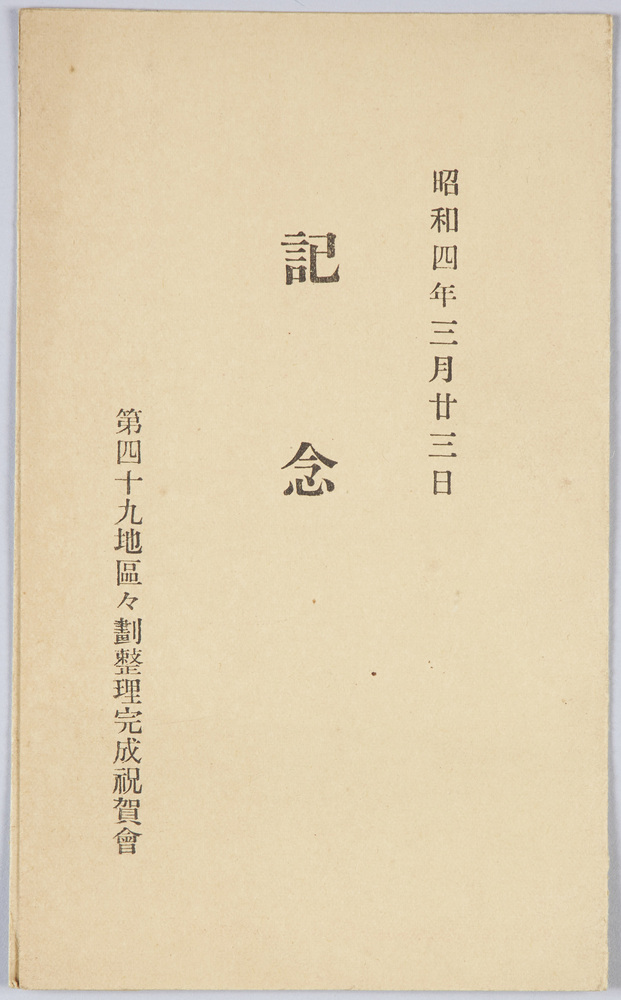 昭和四年三月廿三日
記念
第四十九地區々劃整理完成祝賀會